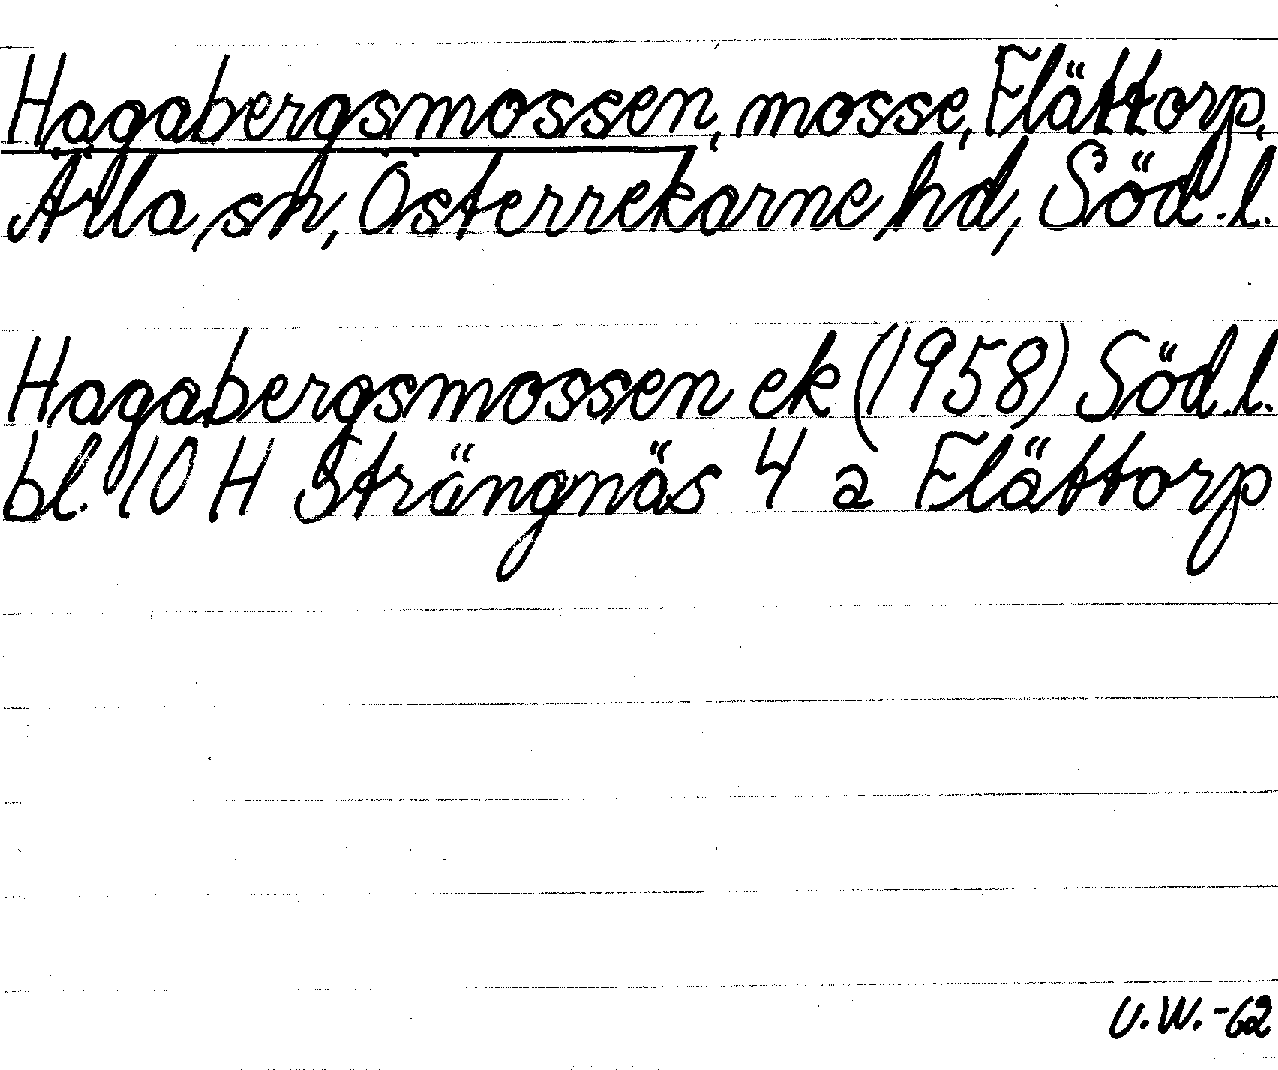 Hagabergsmossen, mosse, Flättorp,
Ärla, sn, Österrekarne, hd, Söd.l.
Hagabergsmossen ek (1958) Söd.l.
bl. 10 H Strängnäs 4 a Flättorp
U.W.-62